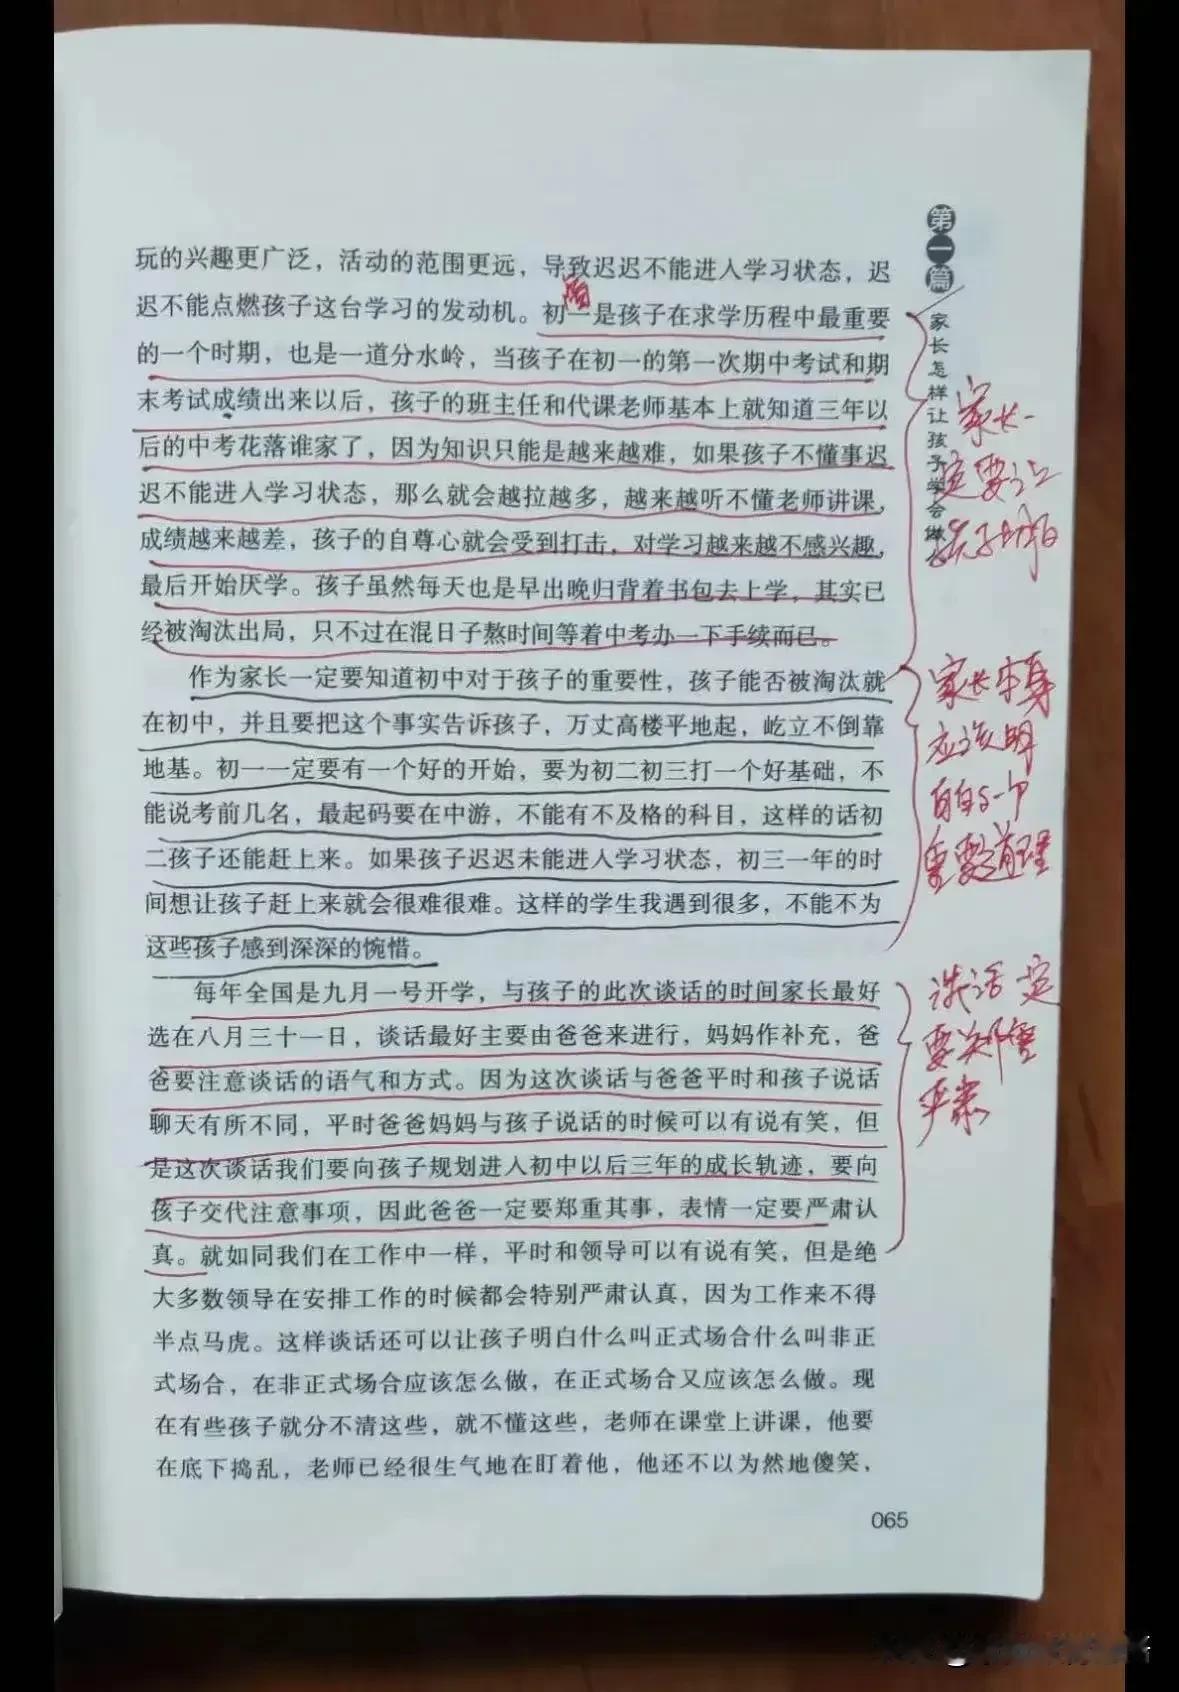 玩的兴趣更广泛，活动的范围更远，导致迟迟不能进入学习状态，迟
迟不能点燃孩子这台学习的发动机。初一是孩子在求学历程中最重要
的一个时期，也是一道分水岭，当孩子在初一的第一次期中考试和期
末考试成绩出来以后，孩子的班主任和代课老师基本上就知道三年以
后的中考花落谁家了，因为知识只能是越来越难，如果孩子不懂事迟
迟不能进入学习状态，那么就会越拉越多，越来越听不懂老师讲课，
成绩越来越差，孩子的自尊心就会受到打击，对学习越来越不感兴趣，
最后开始厌学。孩子虽然每天也是早出晚归背着书包去上学，其实已
经被淘汰出局，只不过在混日子熬时间等着中考办一下手续而已。
作为家长一定要知道初中对于孩子的重要性，孩子能否被淘汰就
在初中，并且要把这个事实告诉孩子，万丈高楼平地起，屹立不倒靠
地基。初一一定要有一个好的开始，要为初二初三打一个好基础，不
能说考前几名，最起码要在中游，不能有不及格的科目，这样的话初
二孩子还能赶上来。如果孩子迟迟未能进入学习状态，初三一年的时
间想让孩子赶上来就会很难很难。这样的学生我遇到很多，不能不为
这些孩子感到深深的惋惜。
每年全国是九月一号开学，与孩子的此次谈话的时间家长最好
选在八月三十一日，谈话最好主要由爸爸来进行，妈妈作补充，爸
爸要注意谈话的语气和方式。因为这次谈话与爸爸平时和孩子说话
聊天有所不同，平时爸爸妈妈与孩子说话的时候可以有说有笑，但
是这次谈话我们要向孩子规划进入初中以后三年的成长轨迹，要向
孩子交代注意事项，因此爸爸一定要郑重其事，表情一定要严肃认
真。就如同我们在工作中一样，平时和领导可以有说有笑，但是绝
大多数领导在安排工作的时候都会特别严肃认真，因为工作来不得
半点马虎。这样谈话还可以让孩子明白什么叫正式场合什么叫非正
式场合，在非正式场合应该怎么做，在正式场合又应该怎么做。现
在有些孩子就分不清这些，就不懂这些，老师在课堂上讲课，他要
在底下捣乱，老师已经很生气地在盯着他，他还不以为然地傻笑，
第一篇
家长怎样让孩子学会
家长一
定要让
孩子明白
家长本身
应该明
白这一个
重要道理
谈话一定
要郑重
严肃
065